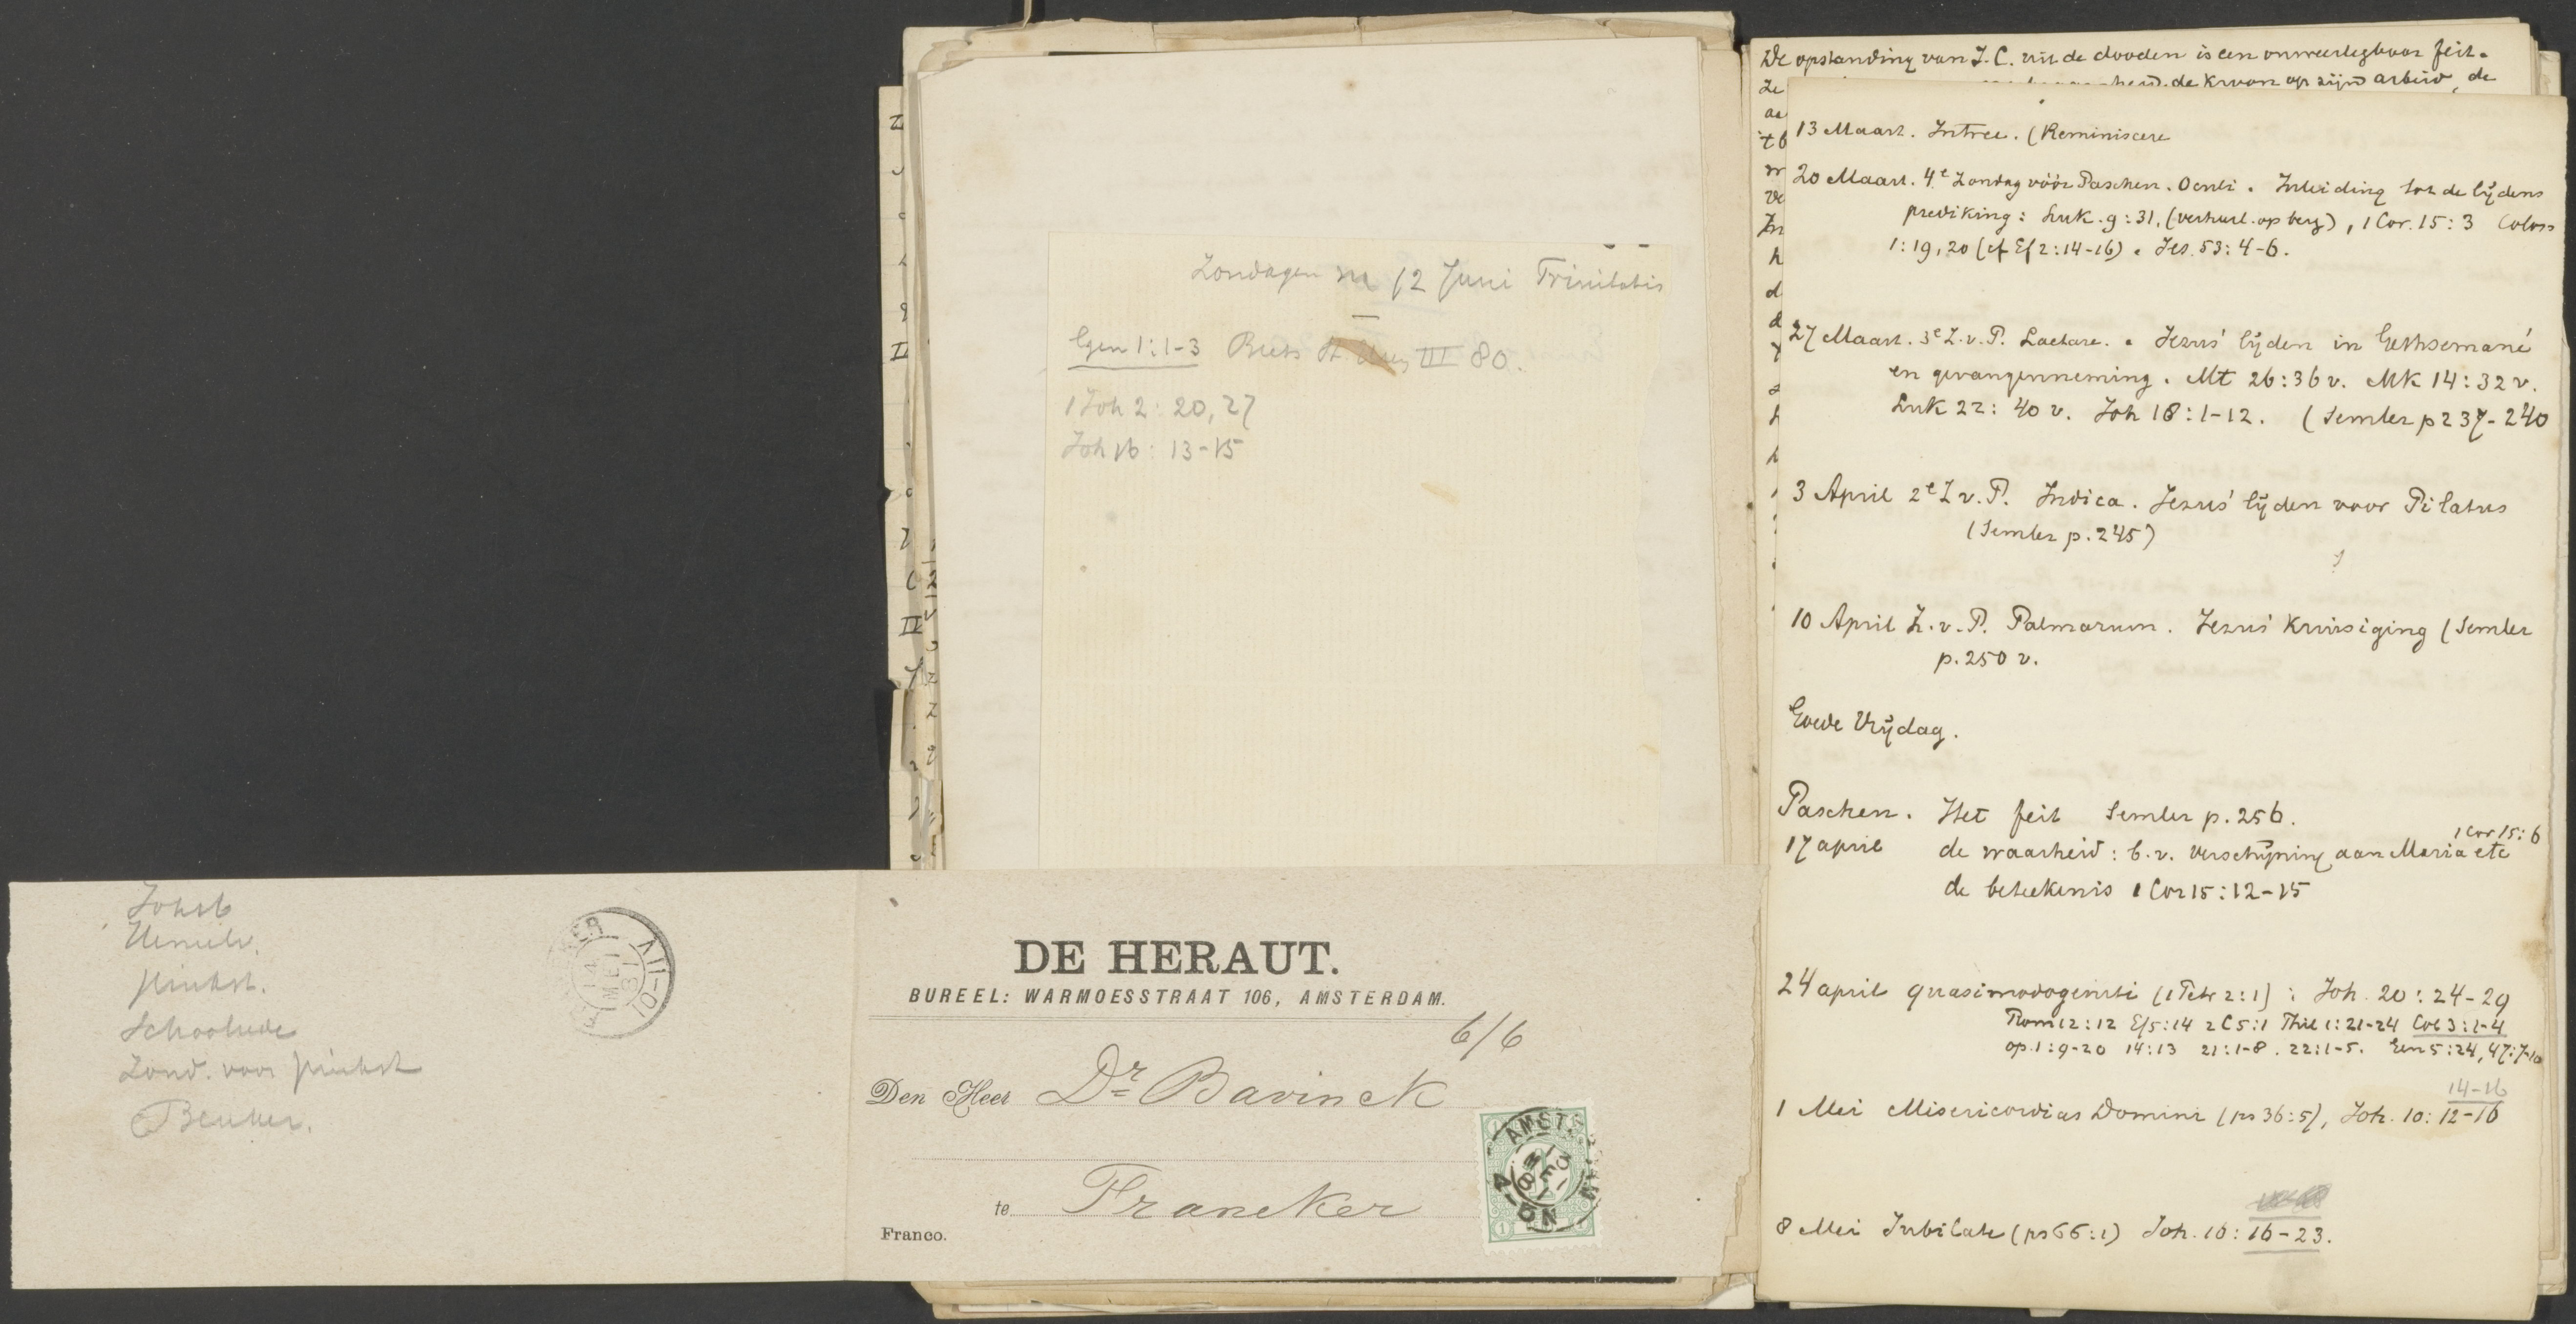 Zond. voor pinkst
Beuker.
DE HERAUT.
BUREEL: WARMOESSTRAAT 106, AMSTERDAM.
6/6
Den Heer Dr Bavinck
te Franeker
Franco.
Zondagen na 12 Juni Trinitatis
Gen 1:1-3 III 80.
1 Joh 2: 20, 27
Joh 16: 13-15
De opstanding van J. C. uit de dooden is een onweerlegbaar feit.
de kroon op zijn arbeid, de
13 Maart. Intree. (Reminiscere
20 Maart. 4e Zondag vóór Paschen. Oculi. Inleiding tot de lijdens
prediking: Luk. 9:31. (verheerl. op berg), 1 Cor. 15:3 Coloss
1:19, 20 (cf Ef 2:14-16). Jes. 53:4-6.
27 Maart. 3e Z. v. P. Laetare. Jezus' lijden in Gethsemané
en gevangenneming. Mt 26:36 v. Mk 14:32 v.
Luk 22: 40 v. Joh 18:1-12. (Semler p 237-240
3 April 2e Z v. P. Judica. Jezus' lijden voor Pilatus
(Semler p. 245)
10 April Z. v. P. Palmarum. Jezus' kruisiging (Semler
p. 250 v.
Goede Vrijdag.
Paschen. Het feit Semler p. 256.
1 Cor 15:6
17 april de waarheid: b.v. verschijning aan Maria etc
de beteekenis 1 Cor 15:12-15
24 april quasimodogeniti (1 Petr 2:1): Joh. 20:24-29
Rom 12:12 Ef 5:14 2 C 5:1 Phil 1:21-24 Col 3:1-4
op. 1:9-20 14:13 21:1-8. 22:1-5. Gen 5:24, 47:7-10
14-16
1 Mei Misericordias Domini (ps 36:5), Joh. 10: 12-16
8 Mei Jubilate (ps 66:1) Joh. 16: 16-23.